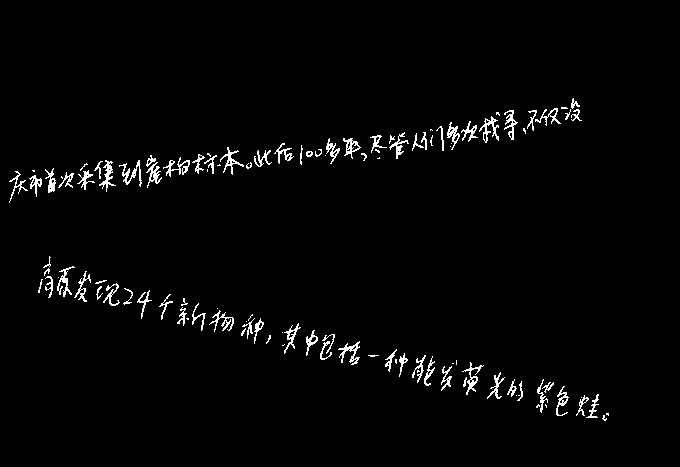 庆市首次采集到崖柏标本。此后100多年,尽管人们多次找寻,不仅没
高原发现24个新物种,其中包括一种能发荧光的紫色蛙。